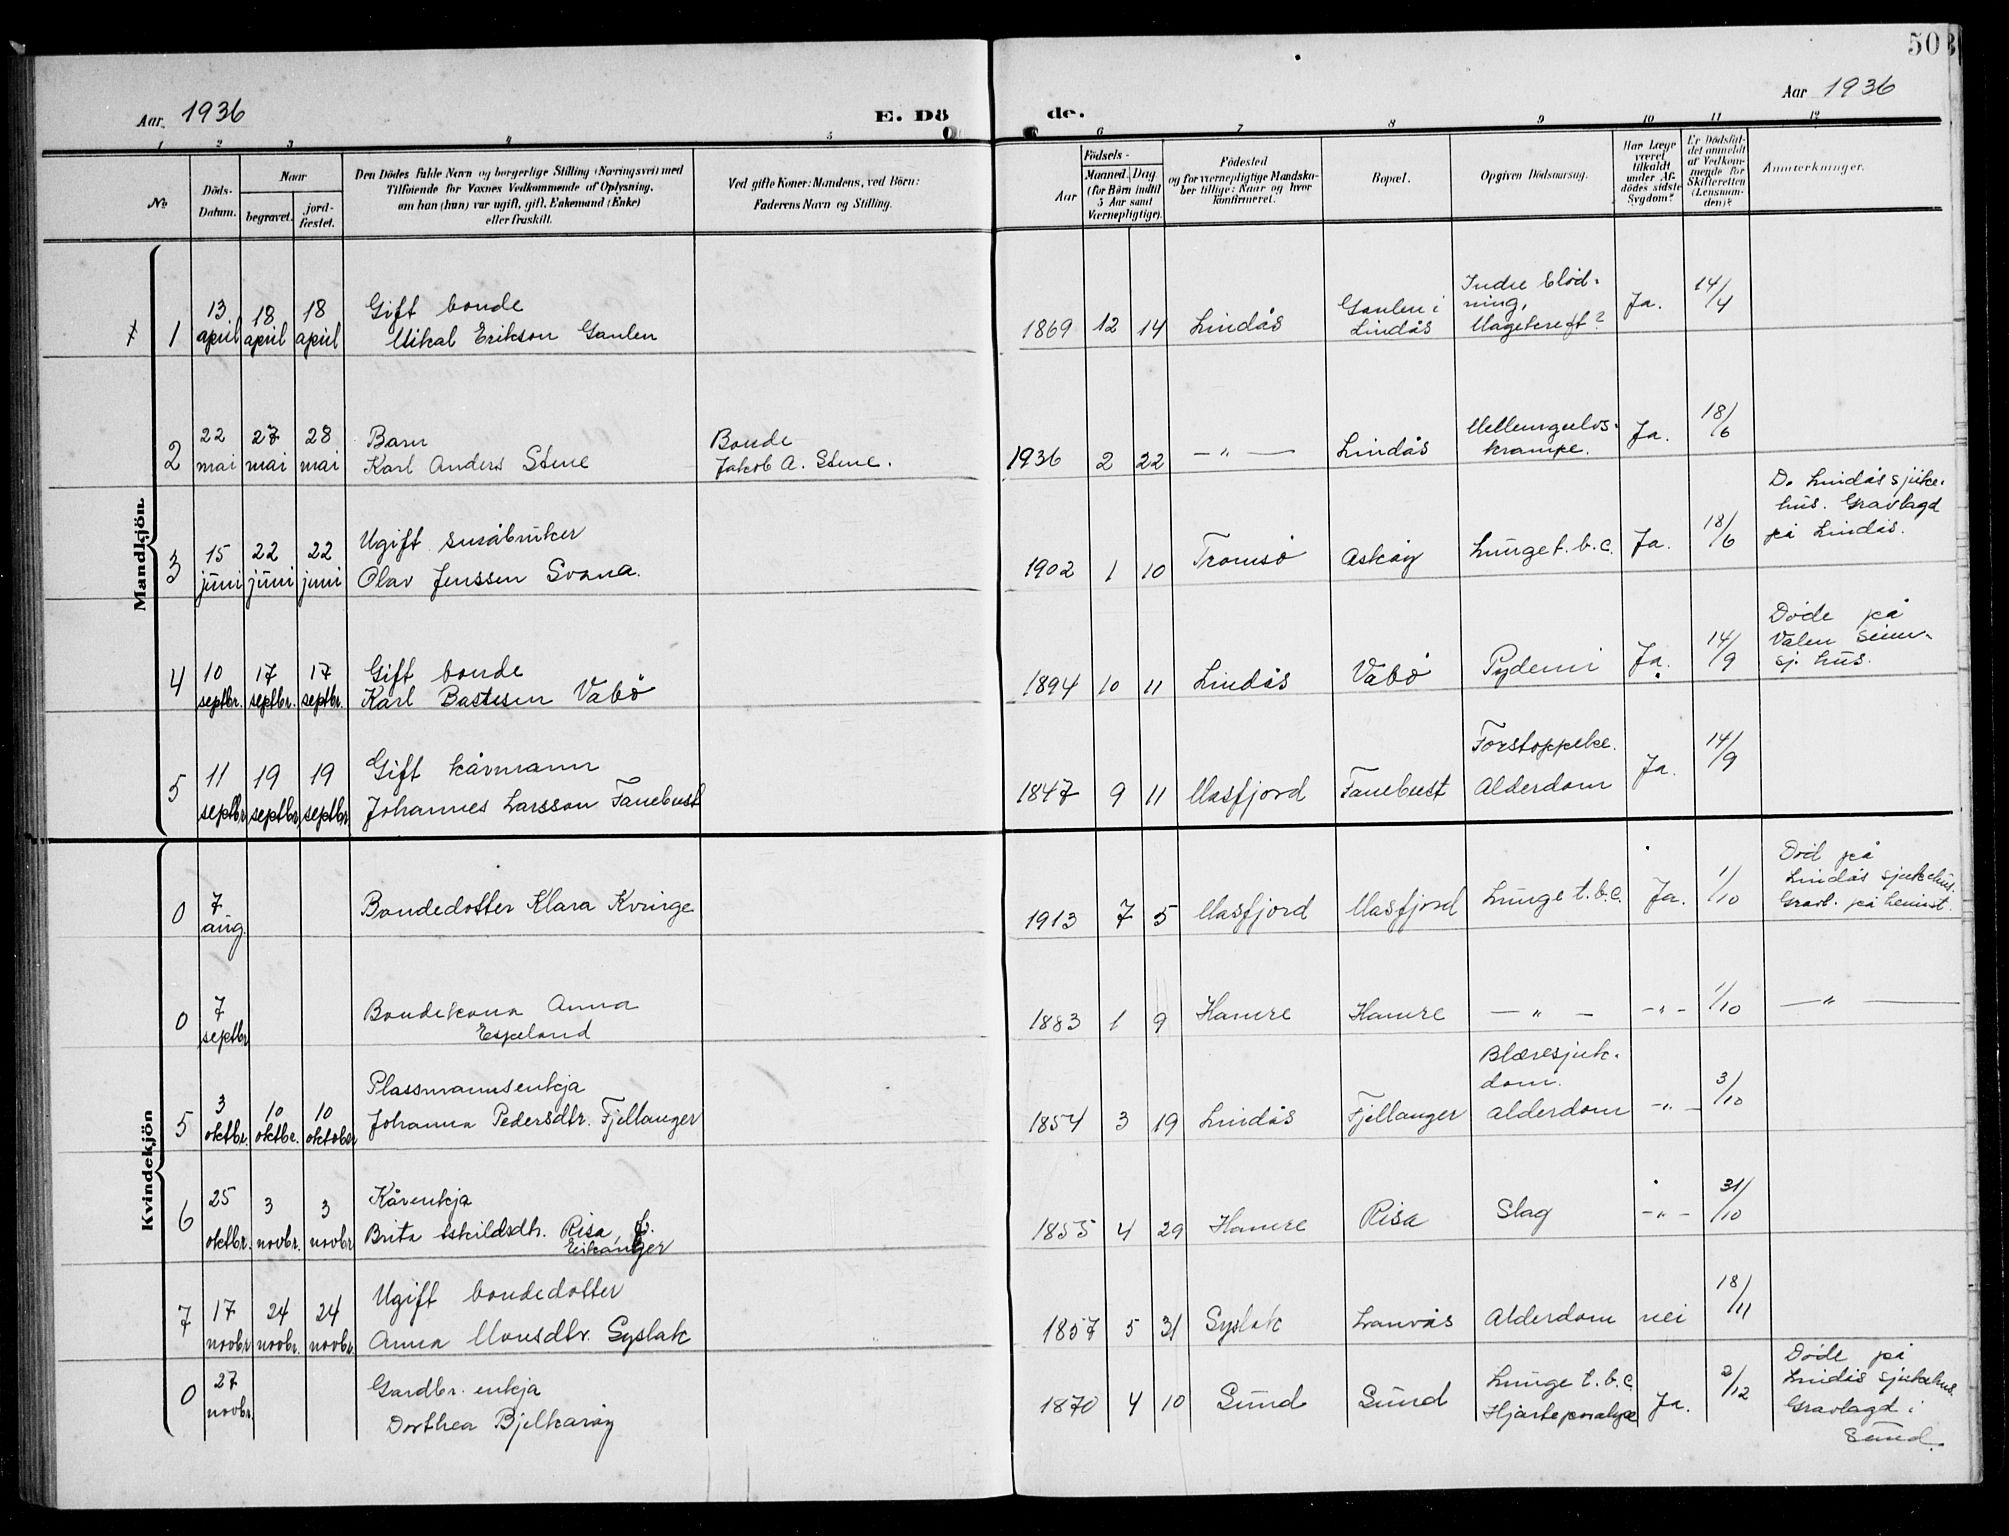 50
Aar 1936
E. Dö
de.
Aar 1936
1 2 3 4 5 6 7 8 9 10 11 12
No
Döds-
Datum.
Naar
begravet.
jord-
fæstet.
Den Dödes fulde Navn og borgerlige Stilling (Næringsvei) med
Tilföiende for Voxnes Vedkommende af Oplysning,
om han (hun) var ugift, gift, Enkemand (Enke)
eller fraskilt.
Ved gifte Koner: Mandens, ved Börn:
Faderens Navn og Stilling.
Födsels-
Aar
Maaned. Dag
(for Börn indtil
5 Aar samt
Værnepligtige).
Födested
og for værnepligtige Mandskaber tillige: Naar og hvor
konfirmeret.
Bopæl.
Opgiven Dödsaarsag.
Har Læge
været
tilkaldt
under Afdödes sidste
Sygdom?
Er Dödsfaldet anmeldt
af Vedkommende for
Skifteretten
(Lensmanden)?
Anmærkninger.
Mandkjön
1 13 april 18 april 18 april Gift bonde
Mikal Erikson Gaulen 1869 12 14 Lindås Gaulen i Lindås Indre blødning, Magekreft? Ja. 14/4
2 22 mai 27 mai 28 mai Barn
Karl Anders Stene Bonde
Jakob A. Stene. 1936 2 22 — " — Lindås Mellemgulvskrampe. Ja. 18/6
3 15 juni 22 juni 22 juni Ugift småbruker
Olav Jenssen Svana. 1902 1 10 Tromsø Askøy Lunge t.b.c. Ja. 18/6 D. Lindås sjukehus. Gravlagd på Lindås.
4 10 septbr. 17 septbr. 17 septbr. Gift bonde
Karl Bastesen Vabø 1894 10 11 Lindås Vabø Pydemi Ja. 14/9 Døde på Valen sinns. sj. hus.
5 11 septbr. 19 septbr. 19 septbr. Gift kårmann
Johannes Larsson Fanebust 1847 9 11 Masfjord Fanebust Forstoppelse. Alderdom Ja. 14/9
Kvindekjön
0 7 aug. Bondedotter Klara Kvinge 1913 7 5 Masfjord Masfjord Lunge t.b.c. Ja. 1/10 Død på Lindås sjukehus. Gravl. på heimst.
0 7 septbr. Bondekona Anna
Espeland 1883 1 9 Hamre Hamre — " — - " - 1/10 — " —
5 3 oktbr. 10 oktbr. 10 oktober Plassmannsenkja
Johanna Pedersdtr. Fjellanger 1854 3 19 Lindås Fjellanger Blæresjukdom. Alderdom - " - 3/10
6 25 oktbr. 3 novbr. 3 novbr Kårenkja
Brita Eskildsdtr. Risa, f.
Eikanger 1855 4 29 Hamre Risa Slag - " - 31/10
7 17 novbr 24 novbr. 24 novbr. Ugift bondedotter
Anna Monsdtr. Syslak 1857 5 31 Syslak Lauvås Alderdom nei 18/11
0 27 novbr. Gardbr. enkja
Dorthea Bjelkarøy 1870 4 10 Sund Sund Lunge t.b.c. Hjarteparalyse Ja. 2/12 Døde på Lindås sjukehus. Gravlagd i Sund.